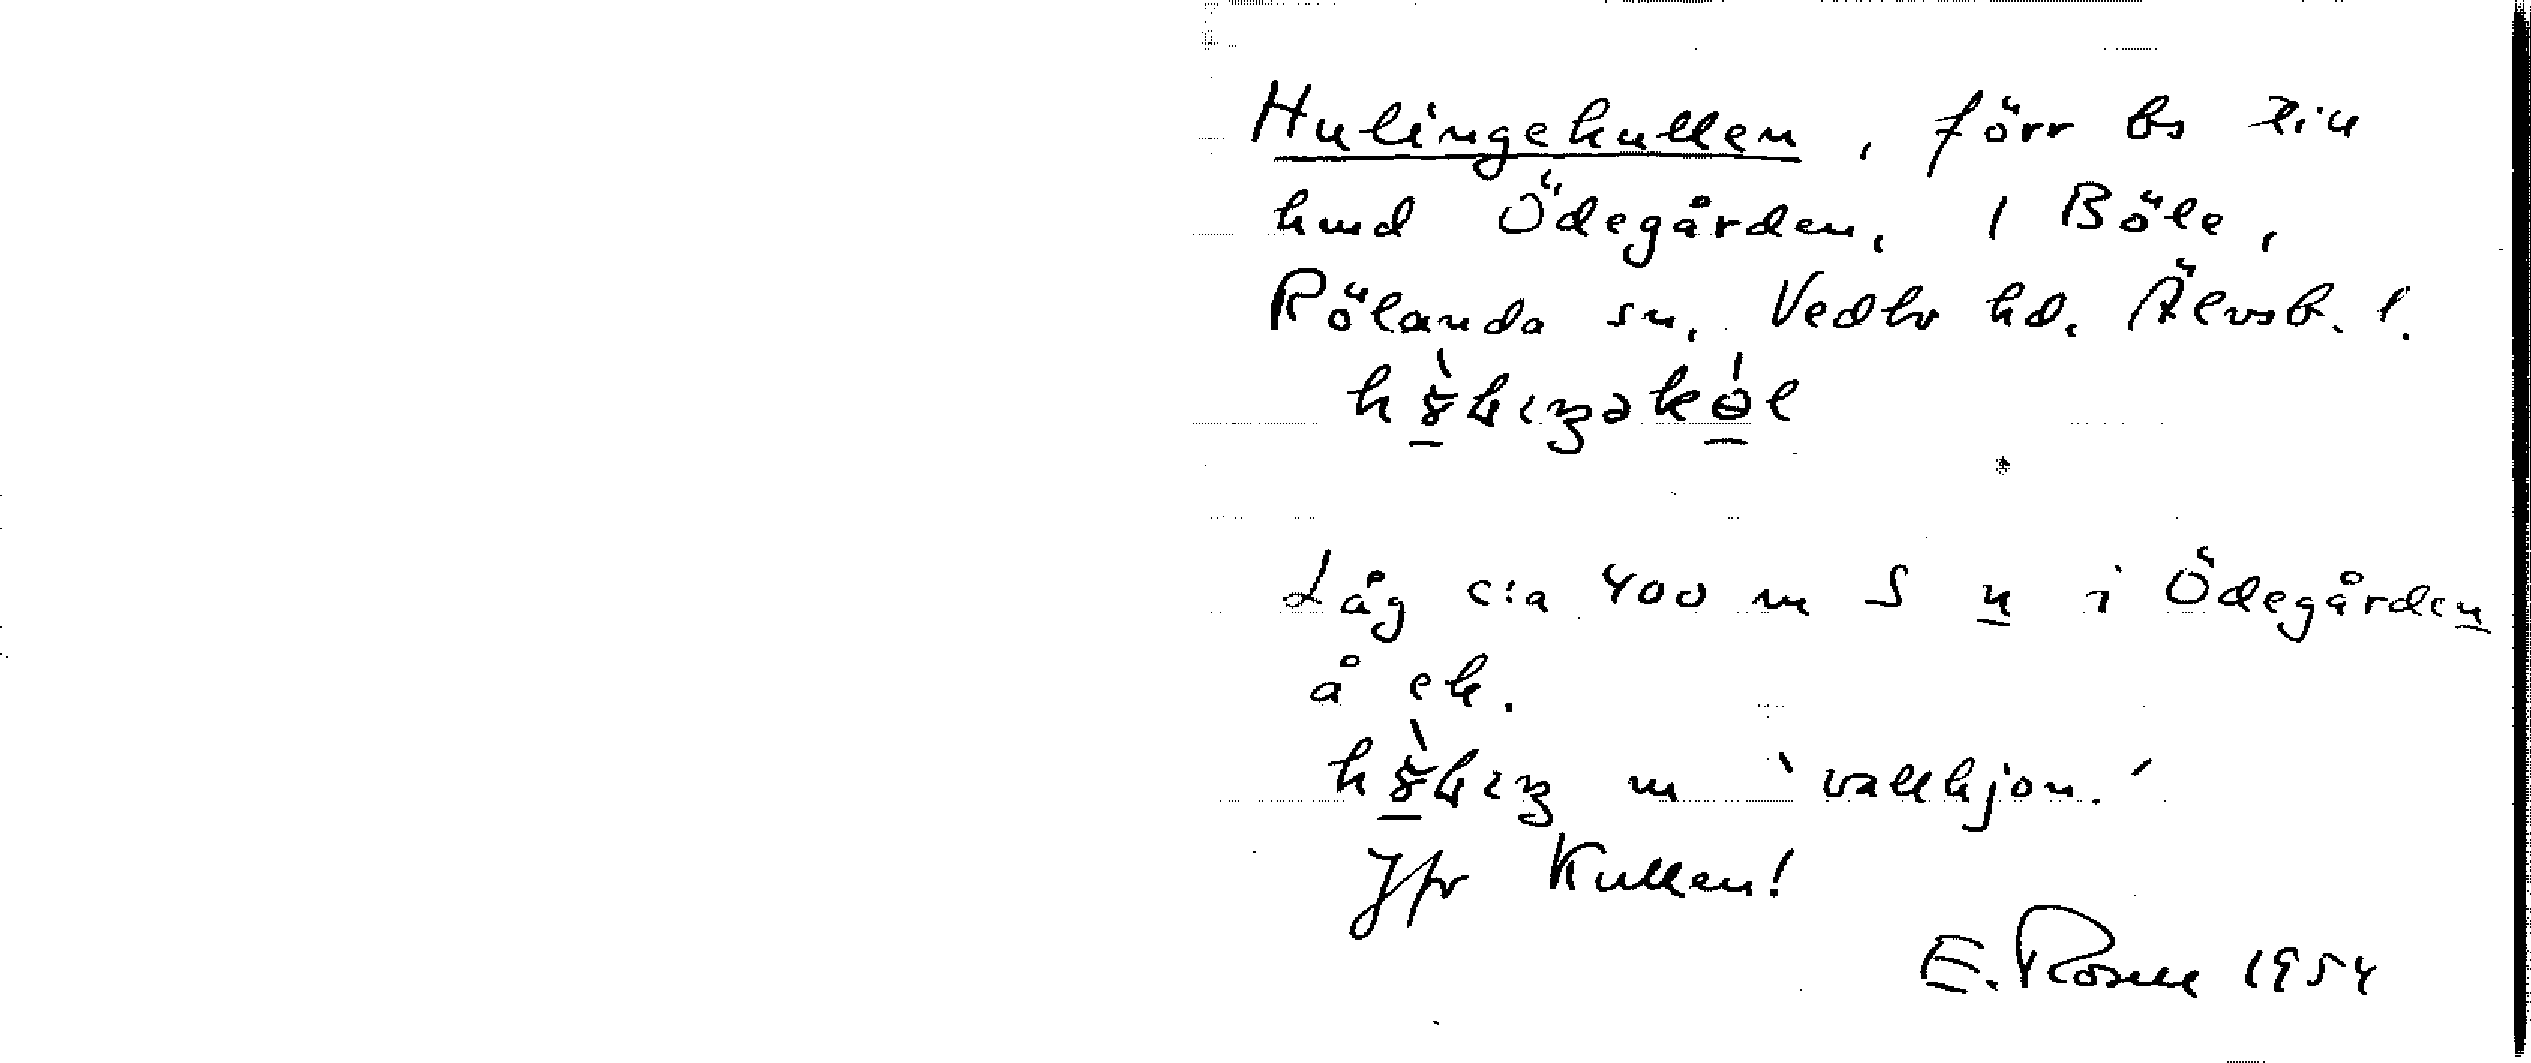 Hulingekullen, förr bs
hmd Ödegården, 1 Böle,
Rölanda sn, Vedbo hd. Älvsb. l.
Låg c:a 400 m S n i Ödegården
å ek.
m 'vallhjon.'
Jfr Kullen!
E. Rosell 1954